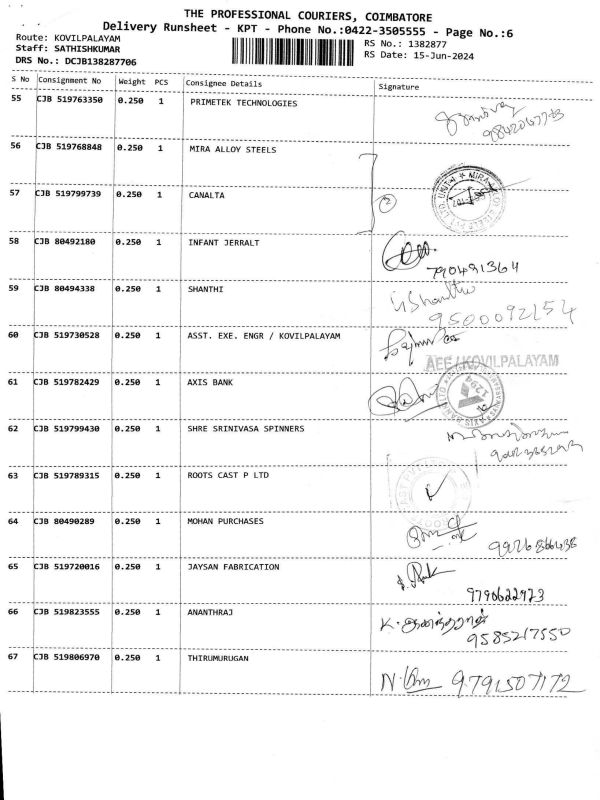 THE PROFESSIONAL COURIERS, COIMBATORE
Delivery Runsheet - KPT - Phone No.:0422-3505555 - Page No.:6
Route: KOVILPALAYAM
Staff: SATHISHKUMAR
DRS No.: DCJB138287706
RS No.: 1382877
RS Date: 15-Jun-2024
S No Consignment No Weight PCS Consignee Details Signature
55 CJB 519763350 0.250 1 PRIMETEK TECHNOLOGIES
56 CJB 519768848 0.250 1 MIRA ALLOY STEELS
57 CJB 519799739 0.250 1 CANALTA 2
58 CJB 80492180 0.250 1 INFANT JERRALT
790491364
59 CJB 80494338 0.250 1 SHANTHI
9500092154
60 CJB 519730528 0.250 1 ASST. EXE. ENGR / KOVILPALAYAM
AEE / KOVILPALAYAM
61 CJB 519782429 0.250 1 AXIS BANK
1294
62 CJB 519799430 0.250 1 SHRE SRINIVASA SPINNERS
63 CJB 519789315 0.250 1 ROOTS CAST P LTD
64 CJB 80490289 0.250 1 MOHAN PURCHASES
65 CJB 519720016 0.250 1 JAYSAN FABRICATION
9790622923
66 CJB 519823555 0.250 1 ANANTHRAJ K. ஆனந்தராஜ்
9585217550
67 CJB 519806970 0.250 1 THIRUMURUGAN
9791507172